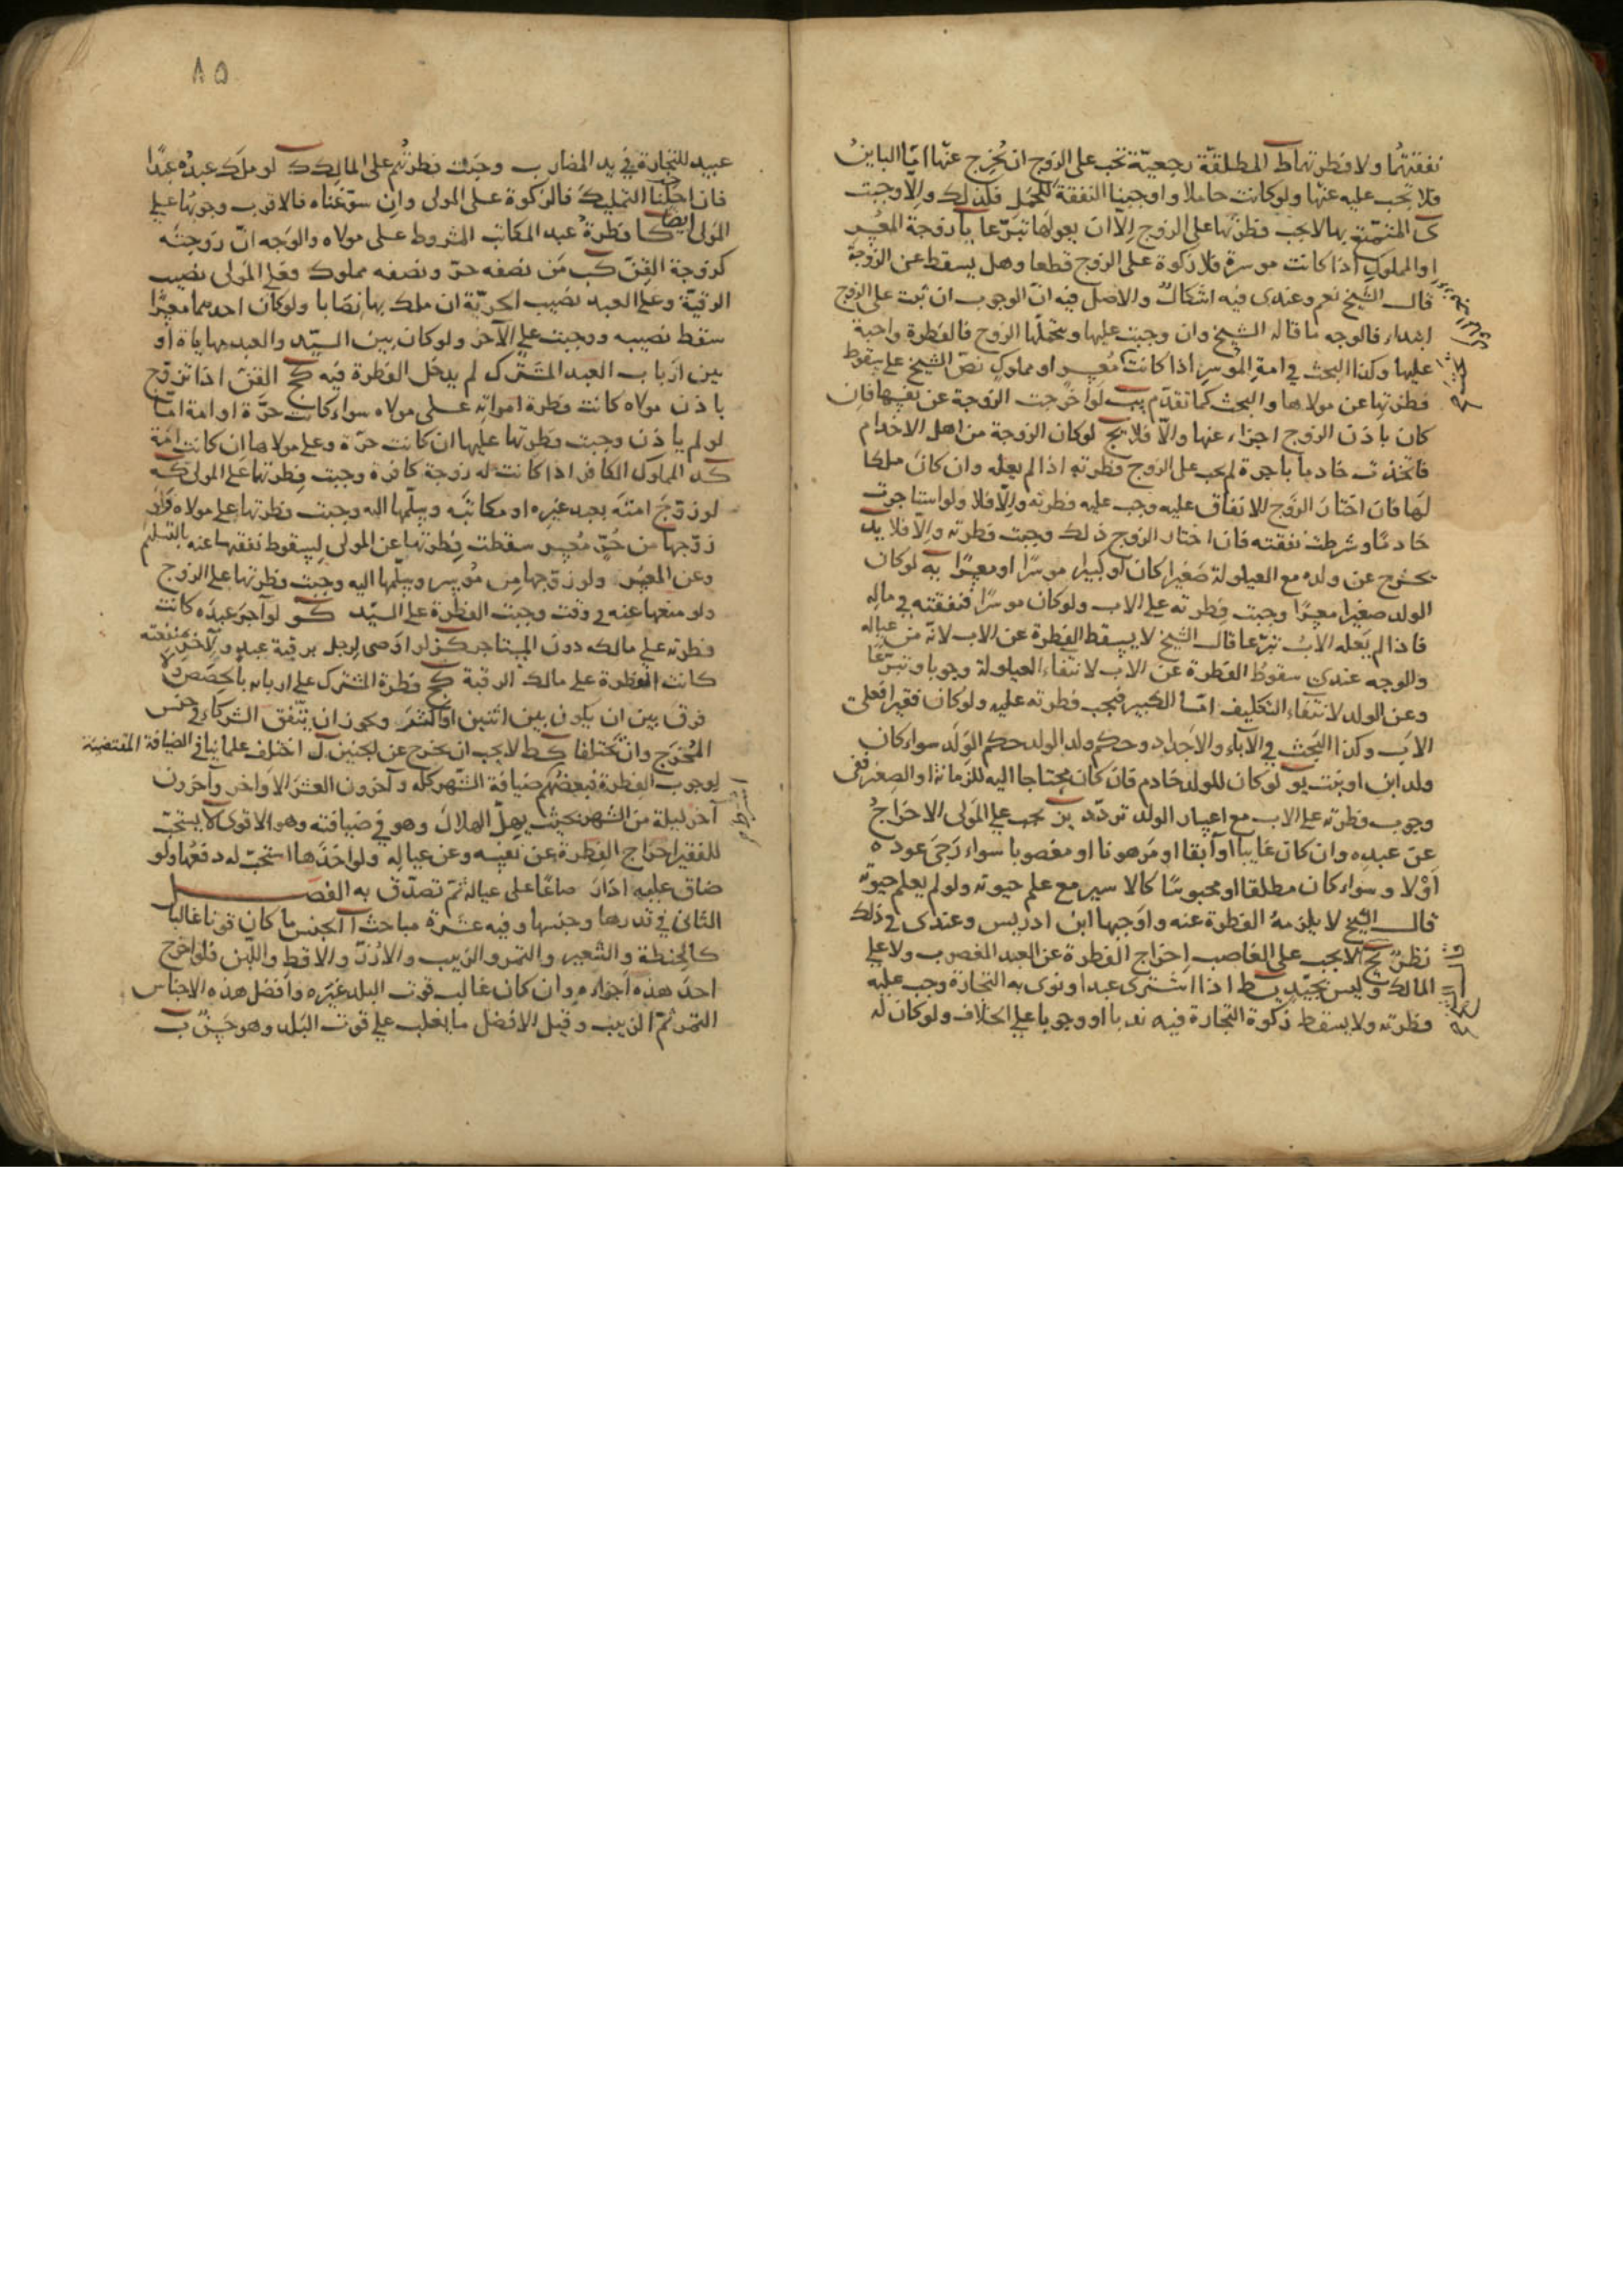 نفقتها ولا فطرتها ط المطلقة رجعية تجب على الزوج ان يخرج عنها اما الباين
فلا تجب عليه عنها ولو كانت حاملا واوجبنا النفقة للحمل فكذلك والا وجبت
ى المتمتع بها لا يجب فطرتها على الزوج الا ان يعولها تبرعا يا زوجة المعسر
او المملوك اذا كانت موسرة فلا زكوة على الزوج قطعا وهل يسقط عن الزوجة
قال الشيخ نعم وعندى فيه اشكال والاصل فيه ان الوجوب ان ثبت على الزوج
ابتداء فالوجه ما قاله الشيخ وان وجبت عليها ويتحملها الزوج فالفطرة واجبة
عليها وكذا البحث في امة الموسر اذا كانت معسر او مملوك نص الشيخ على سقوط
فطرتها عن مولاها والبحث كما تقدم يب لو اخرجت الزوجة عن نفسها فان
كان باذن الزوج اجزاء عنها والا فلا يج لو كان الزوجة من اهل الاخدام
فاتخذت خادما باجرة لم يجب على الزوج فطرته اذا لم يعله وان كان ملكا
لها فان اختار الزوج الانفاق عليه وجب عليه فطرته والا فلا ولو استاجرت
خادما وشرطت نفقته فان اختار الزوج ذلك وجبت فطرته والا فلا يد
يخرج عن ولده مع العيلولة صغيرا كان او كبيرا موسرا او معسرا يه لو كان
الولد صغيرا معسرا وجبت فطرته على الاب ولو كان موسرا فنفقته في ماله
فاذا لم يعله الاب تبرعا قال الشيخ لا يسقط الفطرة عن الاب لانه من عياله
والوجه عندى سقوط الفطرة عن الاب لانتفاء العيلولة وجوبا وتبرعا
وعن الولد لانتفاء التكليف اما الكبير فيجب فطرته عليه ولو كان فقيرا فعلى
الاب وكذا البحث في الآباء والاجداد وحكم ولد الولد حكم الولد سواء كان
ولد ابن او بنت يو لو كان للولد خادم فان كان محتاجا اليه للزمانة او الصغر ففى
وجوب فطرته على الاب مع اعسار الولد تردد يز يجب على المولى الاخراج
عن عبده وان كان غايبا او آبقا او مرهونا او مغصوبا سواء رجى عوده
او لا وسواء كان مطلقا او محبوسا كالاسير مع علم حيوته ولو لم يعلم حيوته
قال الشيخ لا يلزمه الفطرة عنه واوجبها ابن ادريس وعندى في ذلك
نظر يح لا يجب على الغاصب اخراج الفطرة عن العبد المغصوب ولا على
المالك وليس بجيد يط اذا اشترى عبدا ونوى به التجارة وجب عليه
فطرته ولا يسقط زكوة التجارة فيه ندبا او وجوبا على الخلاف ولو كان له
٨٥
عبيد للتجارة في يد المضارب وجبت فطرتهم على المالك ك لو ملك عبده عبدا
فان احلنا التمليك فالزكوة على المولى وان سوغناه فالاقرب وجوبها على
المولى ايضا كا فطرة عبد المكاتب المشروط على مولاه والوجه ان زوجته
كزوجة القن كب من نصفه حر ونصفه مملوك فعلى المولى نصيب
الرقية وعلى العبد نصيب الحرية ان ملك بها نصابا ولو كان احدهما معسرا
سقط نصيبه ووجبت على الآخر ولو كان بين السيد والعبد مهاياة او
بين ارباب العبد المشترك لم يدخل الفطرة فيه كج القن اذا تزوج
باذن مولاه كانت فطرة امراته على مولاه سواء كانت حرة او امة اما
لو لم ياذن وجبت فطرتها عليها ان كانت حرة وعلى مولاها ان كانت امة
كد المملوك الكافر اذا كانت له زوجة كافرة وجبت فطرتها على المولى كه
لو زوج امته بعبد غيره او مكاتبه وسلمها اليه وجبت فطرتها على مولاه ولو
زوجها من حر معسر سقطت فطرتها عن المولى لسقوط نفقتها عنه بالتسليم
وعن المعسر ولو زوجها من موسر وسلمها اليه وجبت فطرتها على الزوج
ولو منعها عنه في وقت وجبت الفطرة على السيد كو لو آجر عبده كانت
فطرته على مالكه دون المستاجر كز لو اوصى لرجل برقبة عبد ولآخر بمنفعته
كانت الفطرة على مالك الرقبة كح فطرة المشترك على اربابه بالحصص ولا
فرق بين ان يكون بين اثنين او اكثر ويجوز ان يتفق الشركاء في جنس
المخرج وان يختلفا كط لا يجب ان يخرج عن الجنين ل اختلف علمائنا في الضيافة المقتضية
لوجوب الفطرة فبعضهم ضيافة الشهر كله وآخرون العشر الاواخر وآخرون
آخر ليلة من الشهر بحيث يهل الهلال وهو في ضيافته وهو الاقوى لا يستحب
للفقير اخراج الفطرة عن نفسه وعن عياله ولو اخذها استحب له دفعها ولو
ضاق عليه ادار صاعا على عياله ثم تصدق به الفصل
الثانى في قدرها وجنسها وفيه عشرة مباحث آ الجنس ما كان قوتا غالبا
كالحنطة والشعير والتمر والزبيب والارز والاقط واللبن فلو اخرج
احد هذه اجزاه وان كان غالب قوت البلد غيره وافضل هذه الاجناس
التمر ثم الزبيب وقيل الافضل ما يغلب على قوت البلد وهو حسن ب